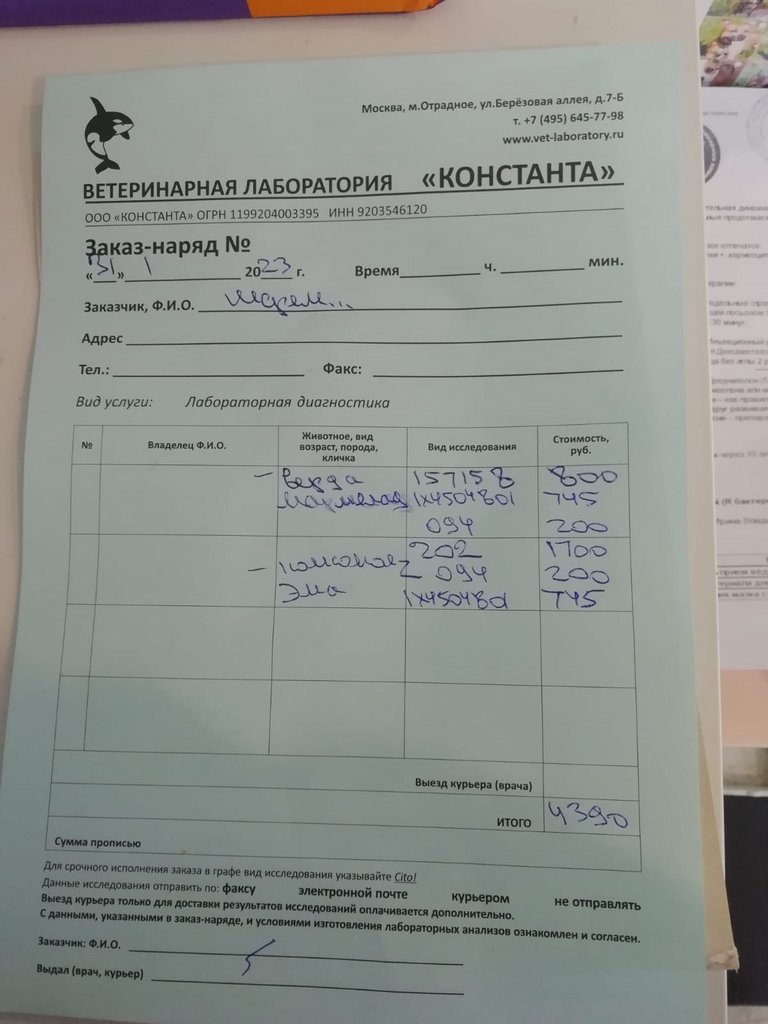 Москва, м.Отрадное, ул.Берёзовая аллея, д.7-Б
т. +7 (495) 645-77-98
www.vet-laboratory.ru
ВЕТЕРИНАРНАЯ ЛАБОРАТОРИЯ «КОНСТАНТА»
ООО «КОНСТАНТА» ОГРН 1199204003395 ИНН 9203546120
Заказ-наряд №
«31» 1 2023 г. Время ч. мин.
Заказчик, Ф.И.О.
Адрес
Тел.: Факс:
Вид услуги: Лабораторная диагностика
№ Владелец Ф.И.О. Животное, вид возраст, порода, кличка Вид исследования Стоимость, руб.
– Верда 157158 800
Мармелад 1X4504801 745
094 200
202 1700
– 094 200
Эма 1X4504801 745
Выезд курьера (врача)
ИТОГО 4390
Сумма прописью
Для срочного исполнения заказа в графе вид исследования указывайте Cito!
Данные исследования отправить по: факсу электронной почте курьером не отправлять
Выезд курьера только для доставки результатов исследований оплачивается дополнительно.
С данными, указанными в заказ-наряде, и условиями изготовления лабораторных анализов ознакомлен и согласен.
Заказчик: Ф.И.О.
Выдал (врач, курьер)